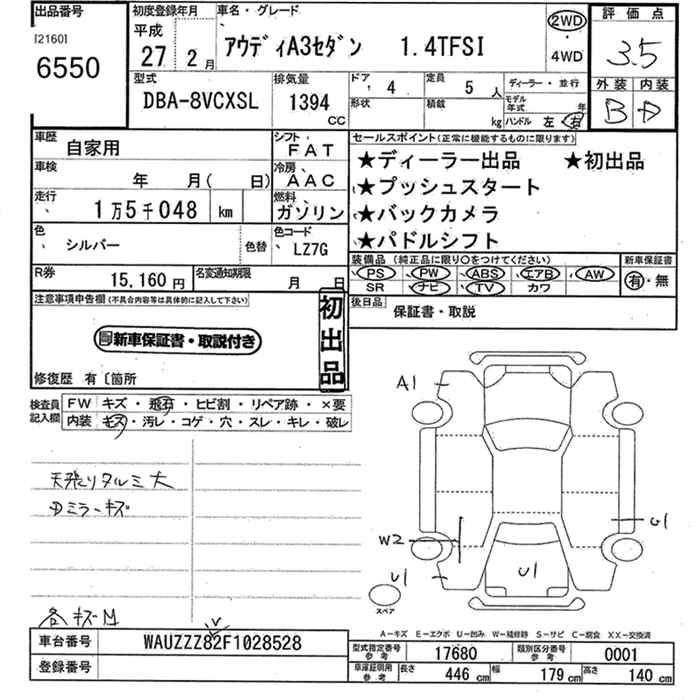 出品番号
[2160]
6550
初度登録年月
平成
27 2月
車名・グレード
アウディA3セダン 1.4TFSI
2WD
・
4WD
評価点
3.5
外装 内装
B D
型式
DBA-8VCXSL
排気量
1394
CC
ドア
4
定員
5 人
ディーラー・並行
形状
積載
kg
モデル年式
年
ハンドル 左・右
車歴
自家用
シフト
FAT
車検
年 月( 日)
冷房
AAC
走行
1万5千048 km
燃料
ガソリン
色
シルバー
色替
色コード
LZ7G
R券
15,160円
名変通知期限
月 日
セールスポイント(正常に機能するものに限ります)
★ディーラー出品 ★初出品
★プッシュスタート
★バックカメラ
★パドルシフト
装備品(純正品に限り○をつけてください)
PS PW ABS エアB AW
SR ナビ TV カワ
新車保証書
有・無
後日品
保証書・取説
注意事項申告欄(不具合内容等は具体的に記入して下さい)
新車保証書・取説付き
初出品
修復歴 有〔箇所
検査員記入欄
FW キズ・飛石・ヒビ割・リペア跡・×要
内装 キズ・汚レ・コゲ・穴・スレ・キレ・破レ
天張りタルミ大
Dミラーキズ
各キズM
A1
W2
U1
U1
G1
スペア
A-キズ E-エクボ U-凹み W-補修跡 S-サビ C-腐食 XX-交換済
車台番号
WAUZZZ82F1028528
登録番号
型式指定番号
参考
17680
類別区分番号
参考
0001
車庫証明用
参考
長さ 446 cm
幅 179 cm
高さ 140 cm